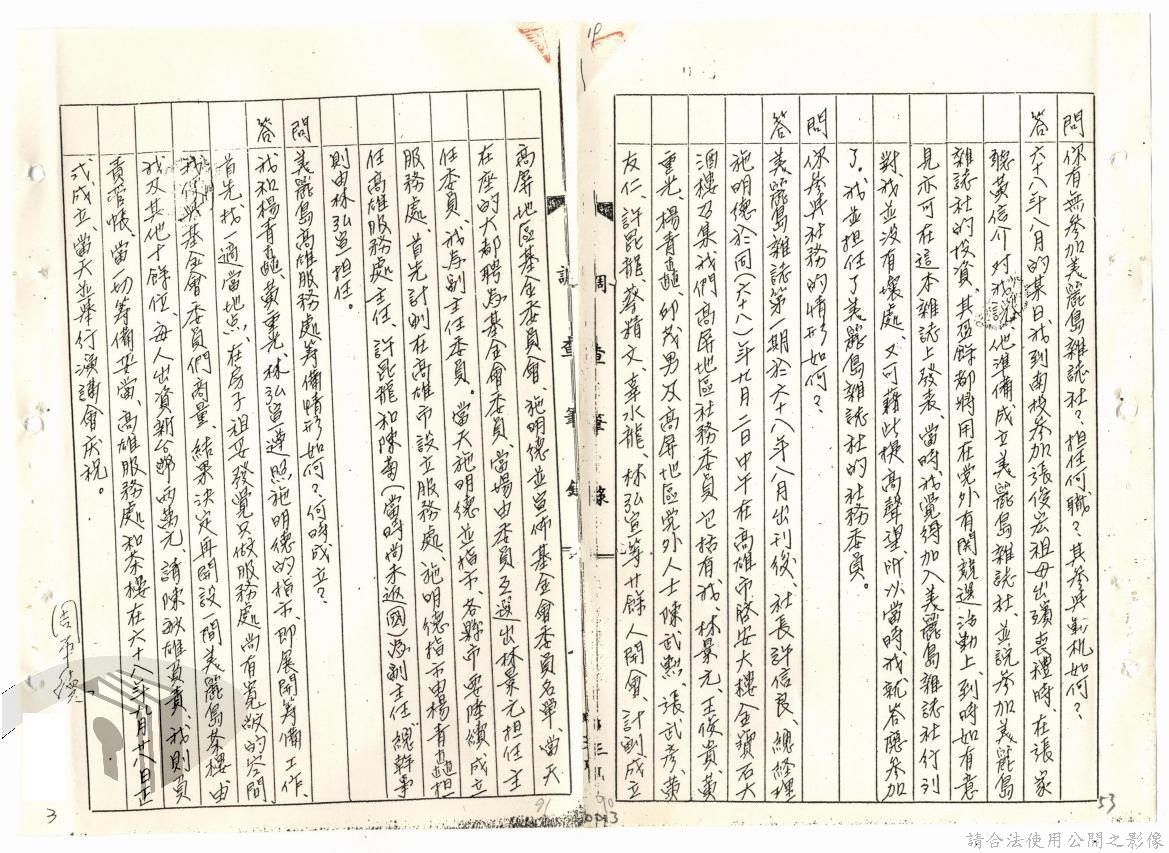 問 你有無參加美麗島雜誌社？担任何職？其參與動机如何？
答 六十八年八月的某日我到南投參加張俊宏祖母出殯喪禮時、在張家
聽黃信介對我說、他準備成立美麗島雜誌社、並說參加美麗島
雜誌社的投資、其盈餘都將用在党外有関競選活動上、到時如有意
見亦可在這本雜誌上發表、當時我覺得加入美麗島雜誌社行列
對我並沒有壞處、又可藉此提高聲望、所以當時我就答應參加
了。我並担任了美麗島雜誌社的社務委員。
問 你參與社務的情形如何？
答 美麗島雜誌第一期於六十八年八月出刊後、社長許信良、總經理
施明德於同(六十八)年九月二日中午在高雄市啓安大樓金寶石大
酒樓召集我們高屏地區社務委員包括有我、林景元、王俊貴、黃
重光、楊青矗、邱茂男及高屏地區党外人士陳武勲、張武彥、黃
友仁、許昆龍、蔡精文、辜水龍、林弘宣等廿餘人開會、計劃成立
調查筆錄
調查筆錄
高屏地區基金委員會、施明德並宣佈基金會委員名單、當天
在座的大都聘為基金會委員、當場由委員互選出林景元担任主
任委員、我為副主任委員。當天施明德並指示、各縣市要陸續成立
服務處、首先計劃在高雄市設立服務處、施明德指示由楊青矗担
任高雄服務處主任、許昆龍和陳菊(當時尚未返國)為副主任、總幹事
則由林弘宣担任。
問 美麗島高雄服務處籌備情形如何？何時成立？
答 我和楊青矗、黃重光、林弘宣遵照施明德的指示、即展開籌備工作、
首先、找一適當地点、在房子租妥發覺只做服務處尚有寬敞的空間、
我們與基金會委員們商量、結果決定再開設一間美麗島茶樓、由
我及其他十餘位、每人出資新台幣兩萬元、請陳敏雄負責、我則負
責管帳、當一切籌備妥當、高雄服務處和茶樓在六十八年九月廿八日正
式成立、當天並舉行演講會庆祝。
周平德
3
91
90
53
請合法使用公開之影像